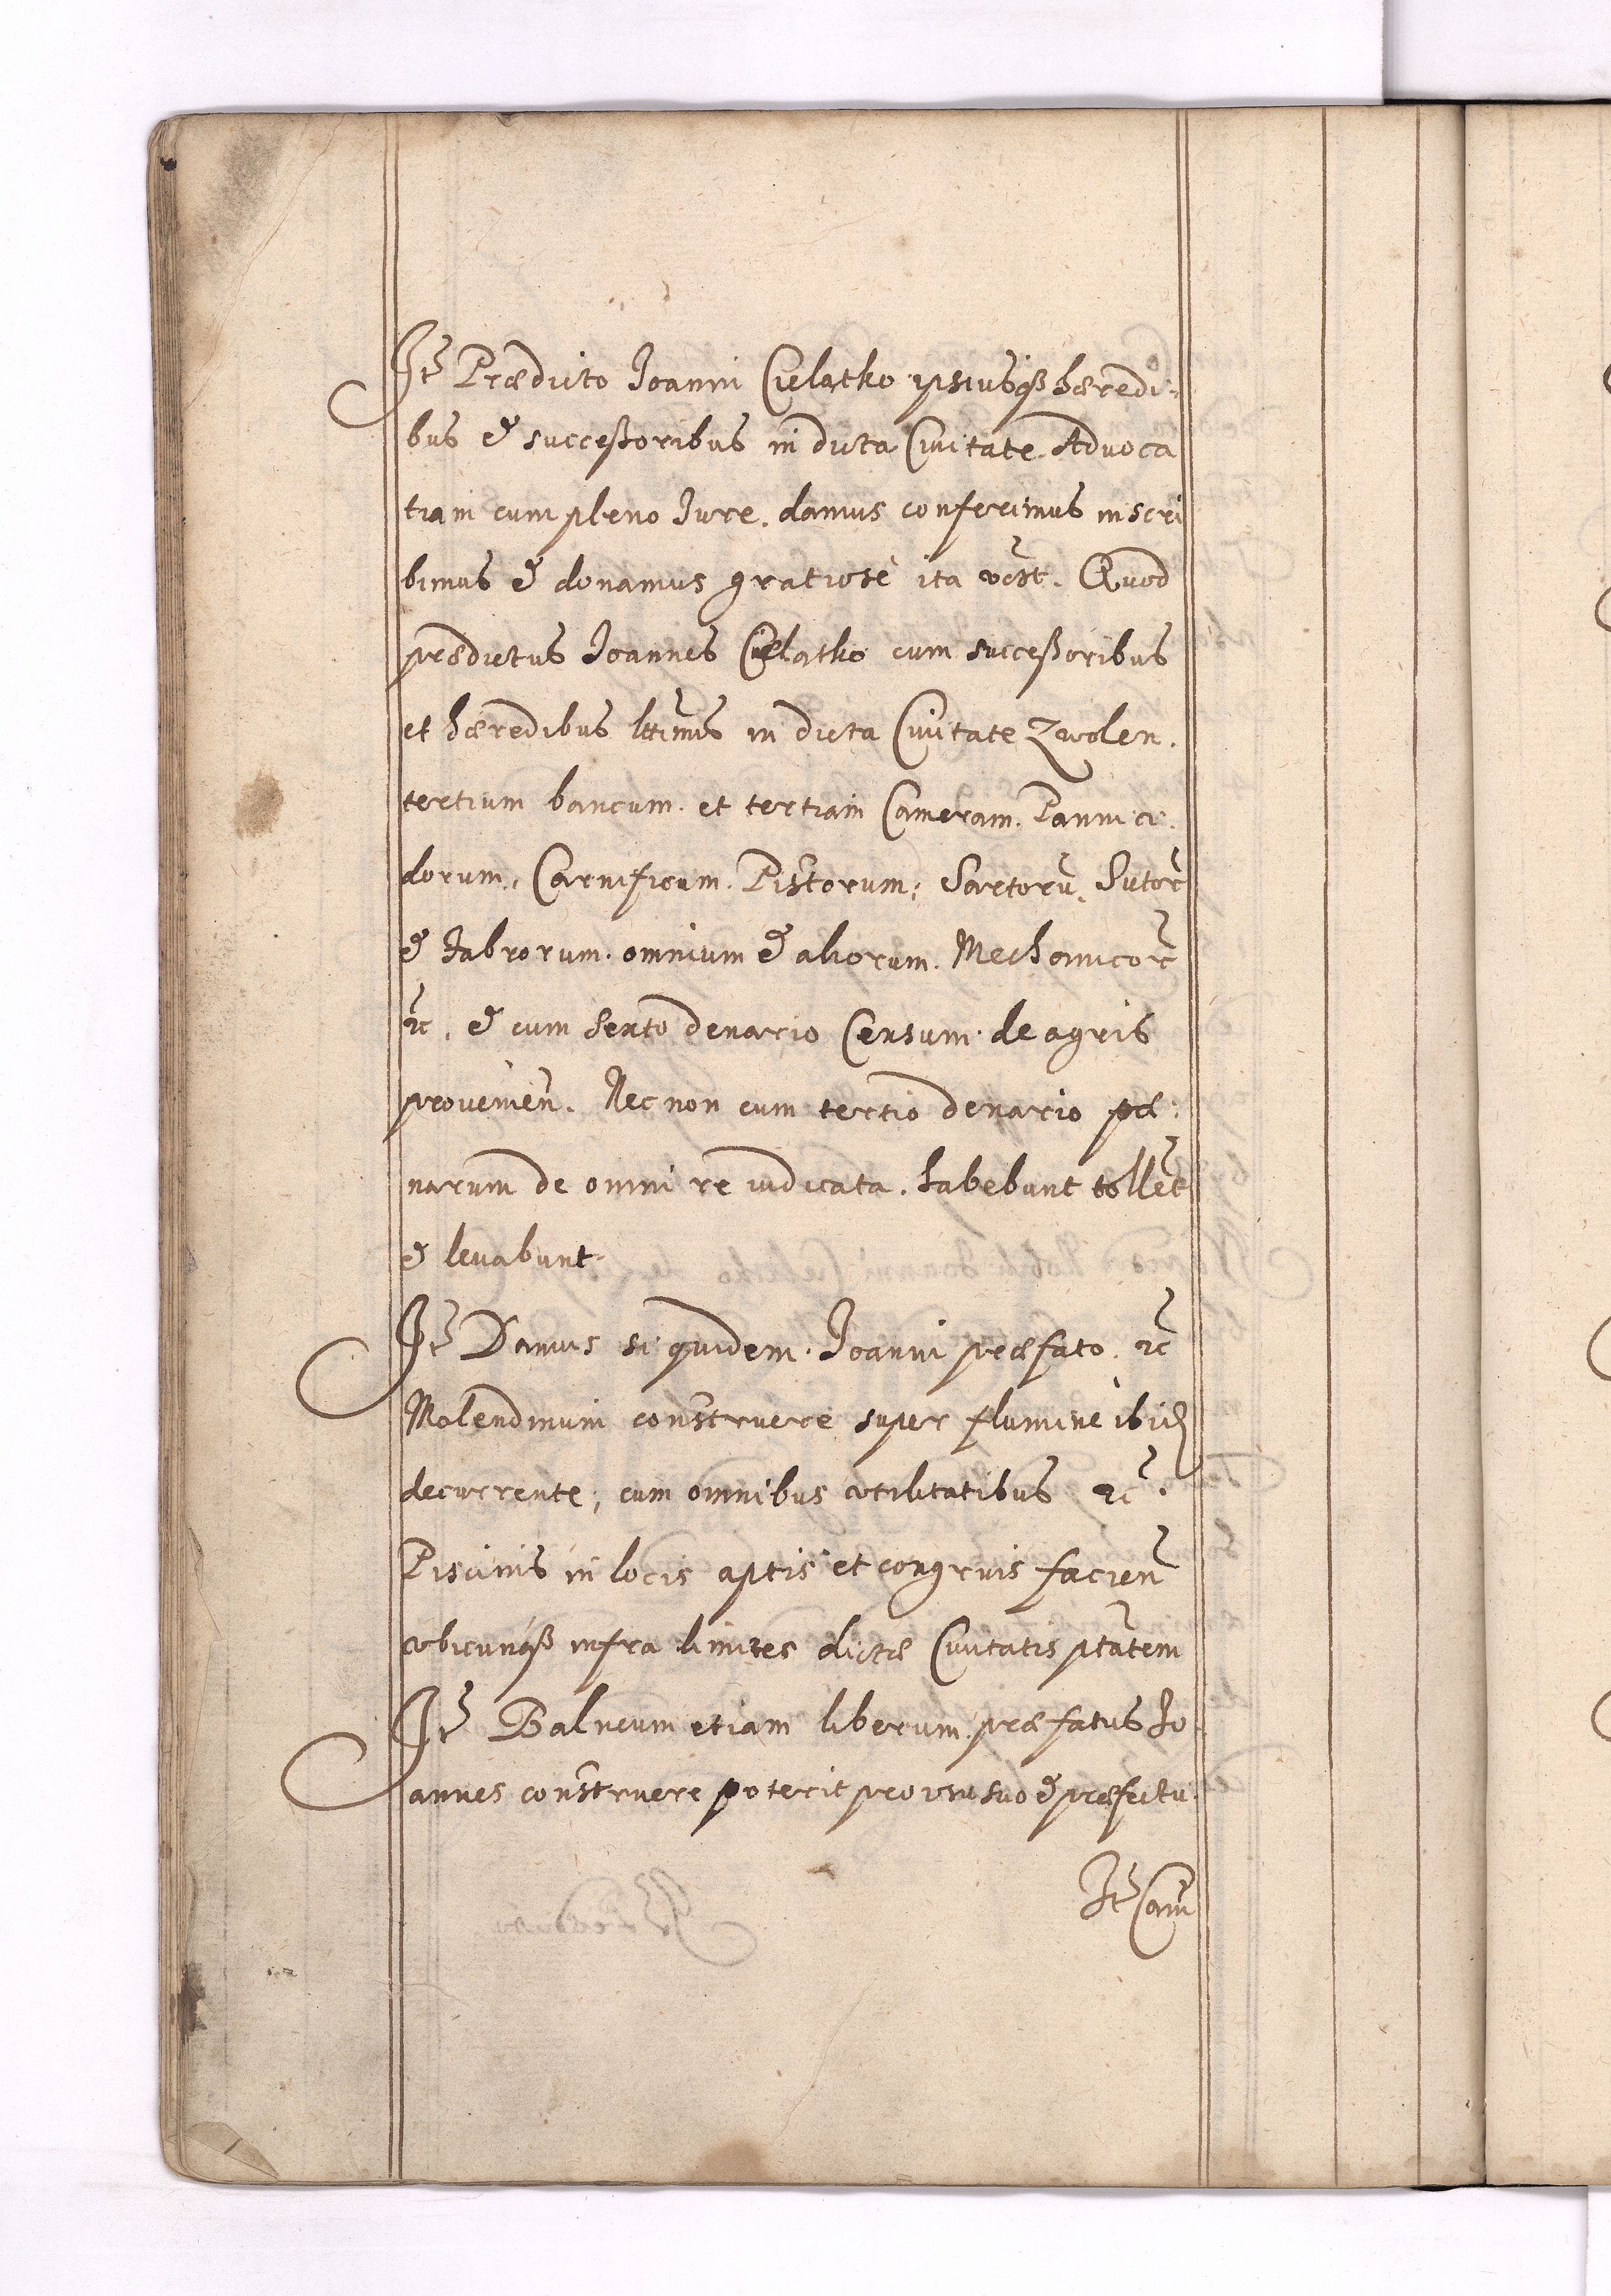 It̃ Prædicto Joanni Cielatko ipsiusqß hæredi:
bus & succeßoribus in dicta Civitate. Advoca
tiam cum pleno Jure. damus conferimus inscri
bimus & donamus gratiosè ita vt̃ est. Quod
prædictus Joannes Cielatko cum succeßoribus
et hæredibus lttimis in dicta Civitate Zwolen.
tertium bancum. et tertiam Cameram. Pannici:
dorum, Carnificum. Pistorum; Sartorũ. Sutor̃
& Fabrorum. omnium & aliorum. Mechanicor̃
ꝛc̃. & cum Sexto denario Censum. de agris
provenieñ. Nec non cum tertio denario pœ:
narum de omni re iudicata. habebunt tollẽt
& levabunt.
It̃ Damus siquidem. Joanni præfato. ꝛc̃
Molendinum construere super flumine ibid
decurrente; cum omnibus vtilitatibus ꝛc̃.
Piscinis in locis aptis et congruis facień
vbicunqß infra limites dictæ Civitatis ptãtem
It̃ Balneum etiam liberum. præfatus Jo
annes construere poterit pro vsu suo & præfectu.
It̃ Cam̃